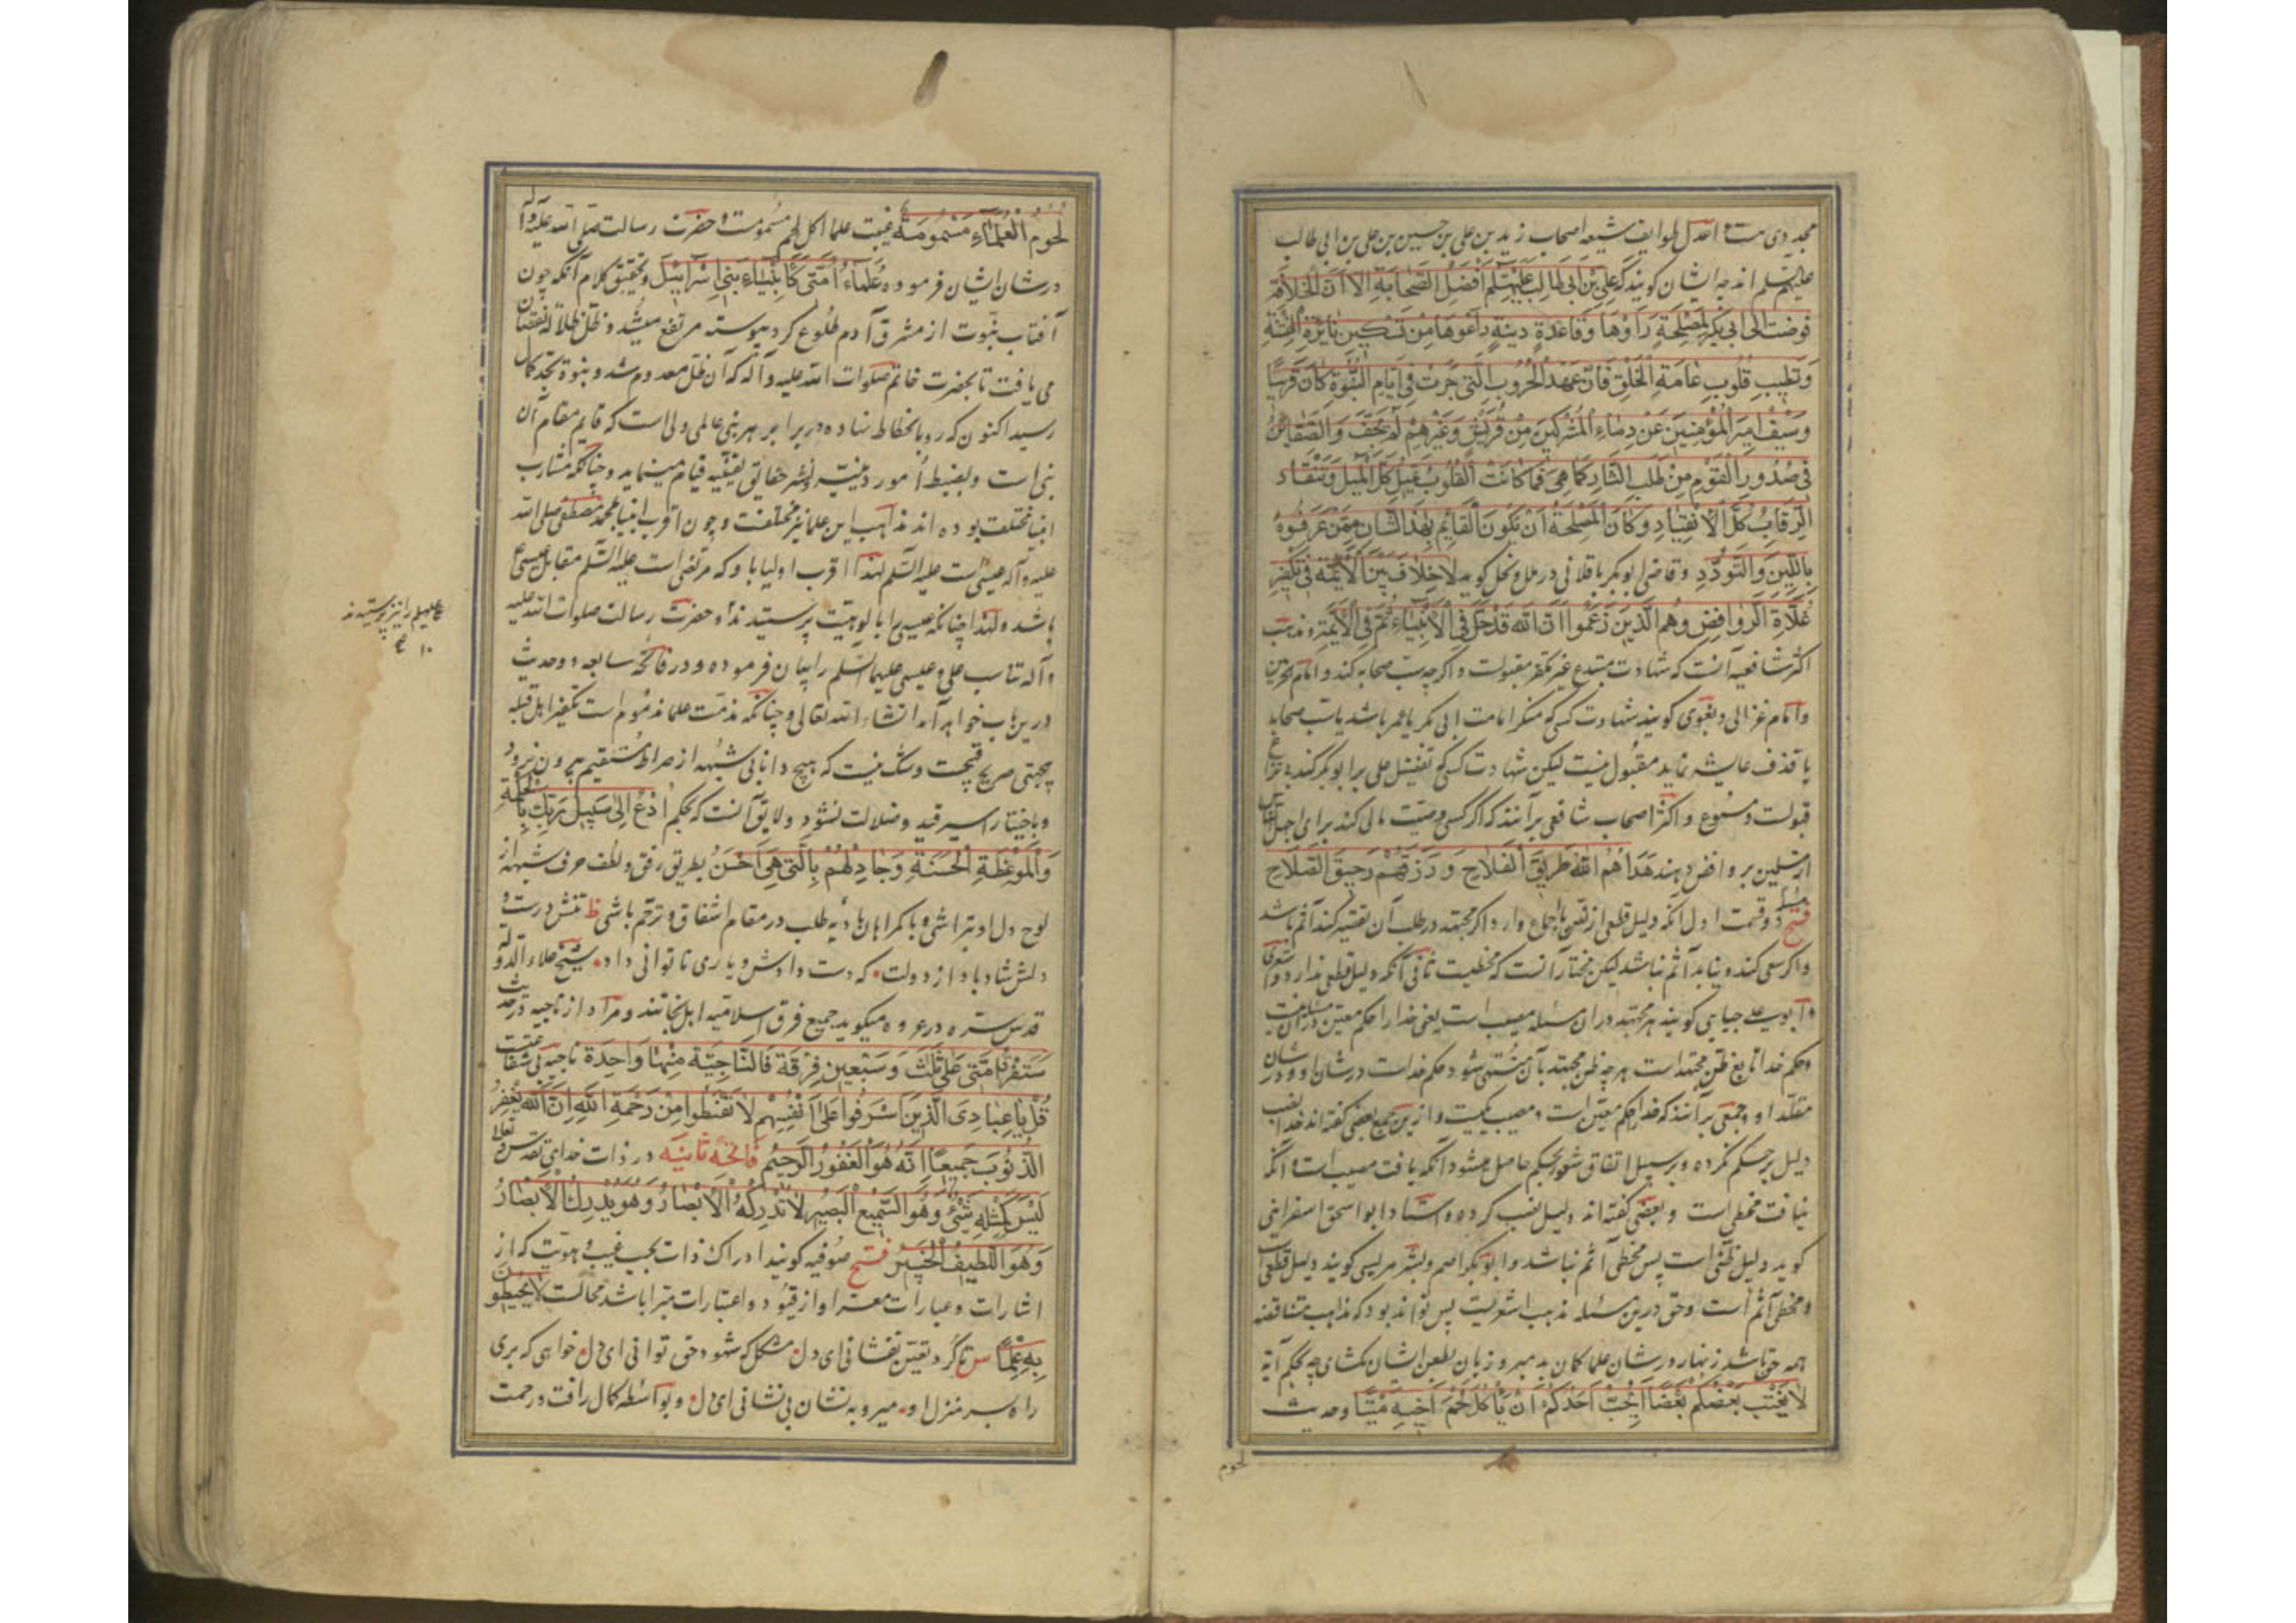 مجددی است و اعدل طوایف شیعه اصحاب زید بن علی بن حسین بن علی بن ابی طالب
علیهم السلم اند چه ایشان گویند که علی بن ابی طالب علیه السلم افضل الصحابة الا ان الخلافة
فوضت الی ابی بکر لمصلحة راوها وقاعدة دینیة راعوها من تسکین نایرة الفتنة
وتطییب قلوب عامة الخلق فان عهد الحروب التی جرت فی ایام النبوة کان قریبا
وسیف امیر المؤمنین عن دماء المشرکین من قریش وغیرهم لم یجف والضغاین
فی صدور القوم من طلب الثار کما هی فما کانت القلوب تمیل کل المیل وتنقاد
الرقاب کل الانقیاد وکان المصلحة ان یکون القایم بهذا الشان ممن عرفوه
باللین والتودد و قاضی ابوبکر باقلانی در ملل و نحل گوید لا خلاف بین الائمة فی تکفیر
غلاة الروافض وهم الذین زعموا ان الله قد حل فی الانبیاء ثم فی الائمة و مذهب
اکثر شافعیه آنست که شهادت مبتدع غیر مکفر مقبولست و اگرچه سب صحابه کند و امام حرمین
و امام غزالی و بغوی گویند شهادت کسی که منکر امامت ابی بکر یا عمر باشد یا سب صحابه
یا قذف عایشه نماید مقبول نیست لیکن شهادت کسی که تفضیل علی بر ابوبکر کند
قبولست و مسموع و اکثر اصحاب شافعی برآنند که اگر کسی وصیت مالی کند برای اجهل ناس
از مسلمین بروافض دهند هداهم الله طریق الفلاح ورزقهم رحیق الصلاح
فتح مسئله دو قسمت اول آنکه دلیل قطعی از نص یا اجماع دارد اگر مجتهد در طلب آن تقصیر کند آثم باشد
و اگر سعی کند و نیابد آثم نباشد لیکن مختار آنست که مخطیست ثانی آنکه دلیل قطعی ندارد و اشعری
و ابو علی جبایی گویند هر مجتهد در آن مسئله مصیب است یعنی خدا را حکم معین در آن مسئله نیست
و حکم خدا تابع ظن مجتهد است هرچه ظن مجتهد بآن منتهی شود حکم خداست در شان او و در شان
مقلد او و جمعی برآنند که خدا را حکم معین است و مصیب یکیست و ازین جمع بعضی گفته اند خدا نصب
دلیل بر حکم نکرده و بر سبیل اتفاق شعور بحکم حاصل میشود آنکه یافت مصیب است و آنکه
نیافت مخطی است و بعضی گفته اند دلیل نصب کرده و استاد ابو اسحق اسفراینی
گوید دلیل ظنی است پس مخطی آثم نباشد و ابوبکر اصم و بشر مریسی گویند دلیل قطعی است
و مخطی آثم است و حق درین مسئله مذهب اشعریست پس تواند بود که مذاهب متناقضه
همه حق باشد زنهار در شان علما گمان بد مبر و زبان بطعن ایشان مگشای چه بحکم آیه
لا یغتب بعضکم بعضا ایحب احدکم ان یاکل لحم اخیه میتا و حدیث
لحوم
لحوم العلماء مسمومة غیبت علما اکل لحم مسمومست و حضرت رسالت صلی الله علیه و آله
در شان ایشان فرموده علماء امتی کانبیاء بنی اسرائیل و تحقیق کلام آنکه چون
آفتاب نبوت از مشرق آدم طلوع کرد پیوسته مرتفع میشد و ظل ظلاله نقصان
می یافت تا بحضرت خاتم صلوات الله علیه و آله که آن ظل معدوم شد و نبوة بحد کمال
رسید اکنون که رو بانحطاط نهاده در برابر هر نبی عالمی و ولی است که قایم مقام آن
نبی است و بضبط امور دینیه و نشر حقایق یقینیه قیام مینماید و چنانکه مشارب
انبیا مختلف بوده اند مذاهب این علما نیز مختلفست و چون اقرب انبیا بمحمد مصطفی صلی الله
علیه و آله عیسی است علیه السلم لهذا اقرب اولیا باو که مرتضی است علیه السلم مقابل عیسی
باشد و لهذا چنانکه عیسی را بالوهیت پرستیدند و حضرت رسالت صلوات الله علیه
علی علیه السلم را نیز پرستیدند
و آله تناسب علی و عیسی علیهما السلم را بیان فرموده و در فاتحه سابعه دو حدیث
درین باب خواهد آمد انشاء الله تعالی و چنانکه مذمت علما مذموم است تکفیر اهل قبله
بجهتی صریح قبیحست و شک نیست که هیچ دانا بی شبهه از صراط مستقیم بیرون نرود
و باختیار اسیر قید و ضلالت نشود و لایق آنست که بحکم ادع الی سبیل ربک بالحکمة
والموعظة الحسنة وجادلهم بالتی هی احسن بطریق رفق و لطف حرف شبهه از
لوح دل او بتراشی و با گمراهان بادیه طلب در مقام اشفاق و ترحم باشی تنش درست و
دلش شاد باد از دولت که دست دادش و یاری ناتوانی داد شیخ علاء الدوله
قدس سره در عروه میگوید جمیع فرق اسلامیه اهل نجاتند و مراد از ناجیه در حدیث
ستفرق امتی علی ثلث وسبعین فرقة فالناجیة منها واحدة ناجیه بی شفاعتست
قل یا عبادی الذین اسرفوا علی انفسهم لا تقنطوا من رحمة الله ان الله یغفر
الذنوب جمیعا انه هو الغفور الرحیم فاتحه ثانیه در ذات خدای تقدس و تعالی
لیس کمثله شیء وهو السمیع البصیر لا تدرکه الابصار وهو یدرک الابصار
وهو اللطیف الخبیر فتح صوفیه گویند ادراک ذات بحسب غیب هویت که از
اشارات و عبارات معرا و از قیود و اعتبارات مبرا باشد محالست لا یحیطون
به علما س تا گرد تعین نفشانی ای دل مشکل که شهود حق توانی ای دل خواهی که بری
راه بسر منزل او میرو به نشان بی نشانی ای دل و بواسطه کمال رافت و رحمت